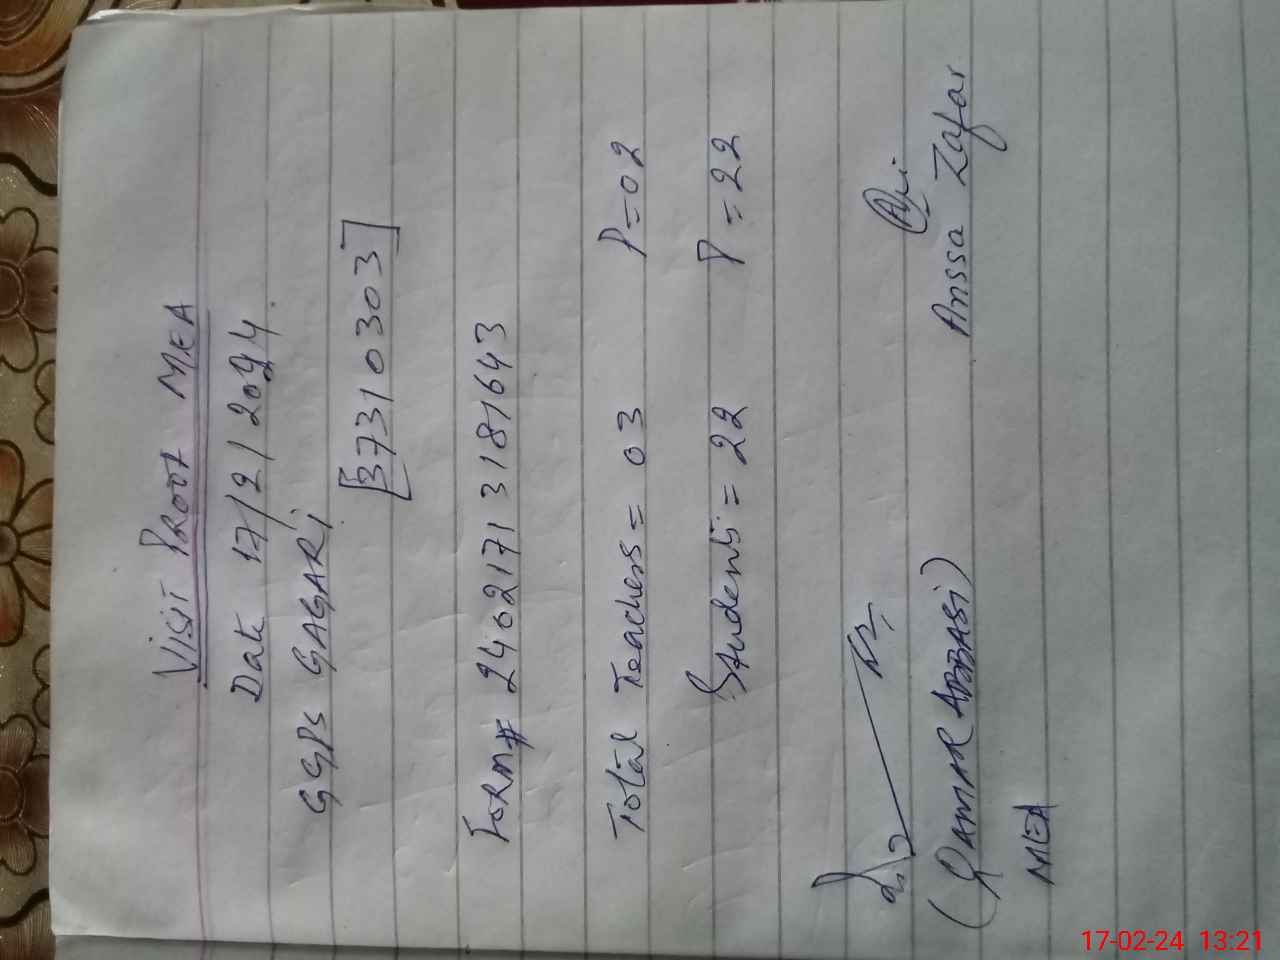 VISIT PROOF MEA
Date 17/2/2024.
GGPS GAGARI
[37310303]
FORM# 24021713181643
Total Teachers = 03 P=02
Students = 22 P = 22
(QAMAR ABBASI)
MEA
Anssa Zafar
17-02-24 13:21